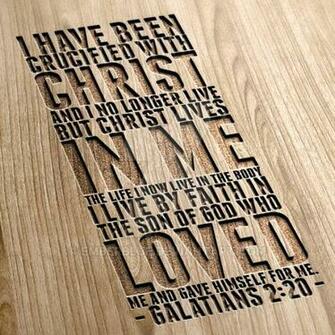 I HAVE BEEN
CRUCIFIED WITH
CHRIST
AND I NO LONGER LIVE
BUT CHRIST LIVES
IN ME
THE LIFE I NOW LIVE IN THE BODY
I LIVE BY FAITH IN
THE SON OF GOD WHO
LOVED
ME AND GAVE HIMSELF FOR ME.
- GALATIANS 2:20 -